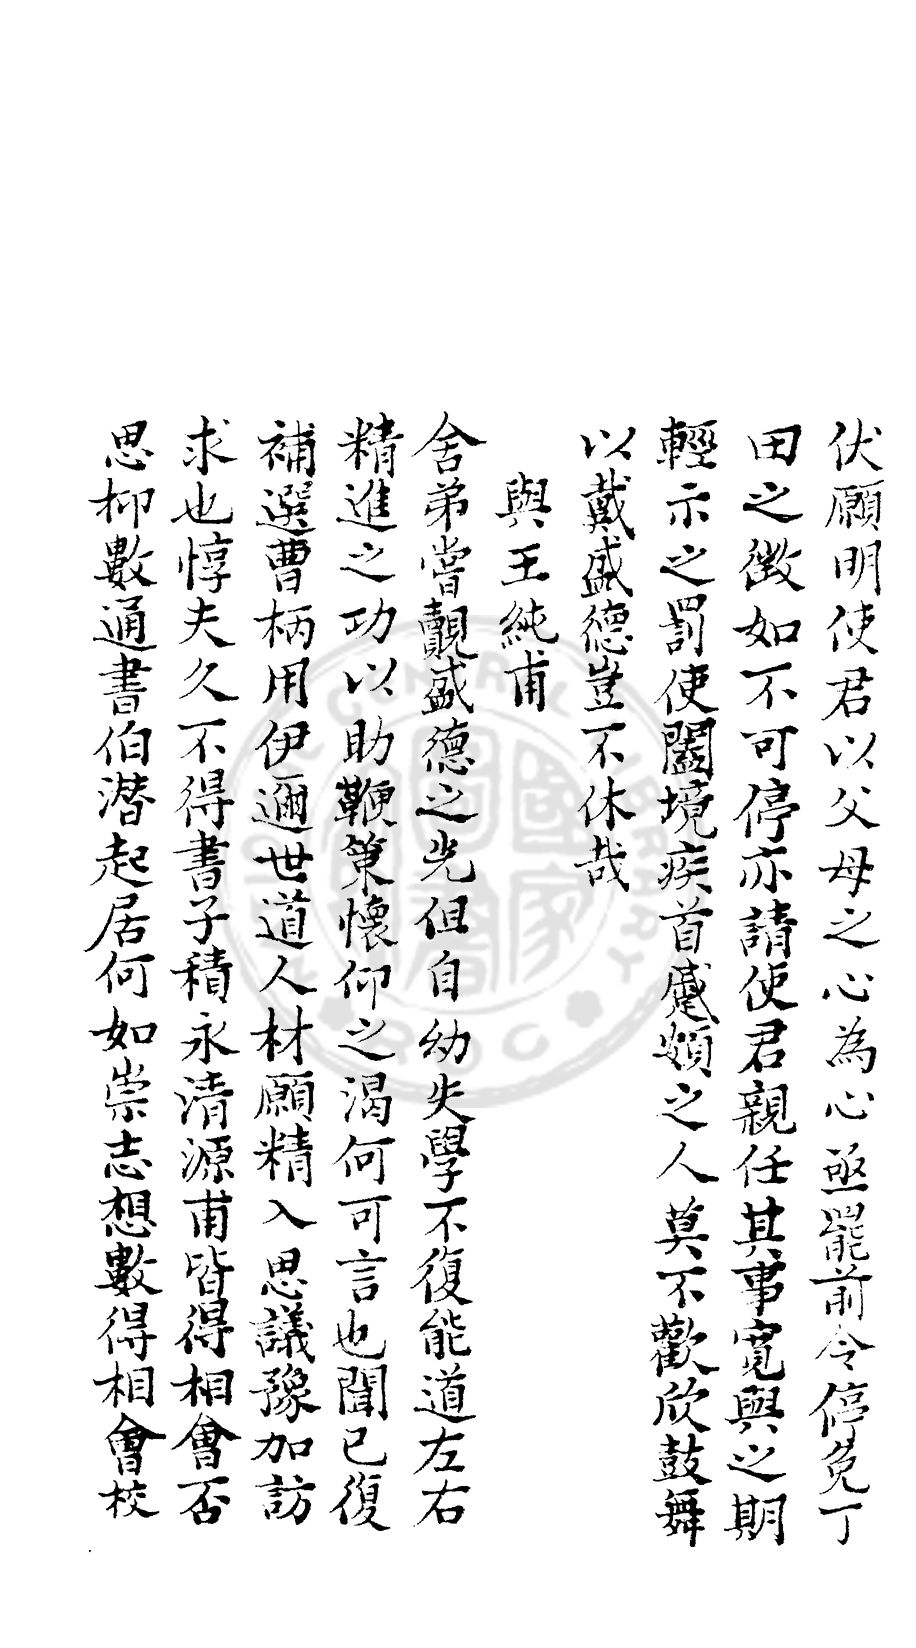 伏願明使君以父母之心為心亟罷前令停免丁
田之徵如不可停亦請使君親任其事寬與之期
輕示之罰使闔境疾首蹙頞之人莫不歡欣鼓舞
以戴盛德豈不休哉
與王純甫
舍弟嘗覿盛德之光但自幼失學不復能道左右
精進之功以助鞭策懷仰之渴何可言也聞已復
補選曹柄用伊邇世道人材願精入思議豫加訪
求也惇夫久不得書子積永清源甫皆得相會否
思抑數通書伯潜起居何如崇志想數得相會校
NATIONAL CENTRAL LIBRARY
R.O.C
國家圖書館